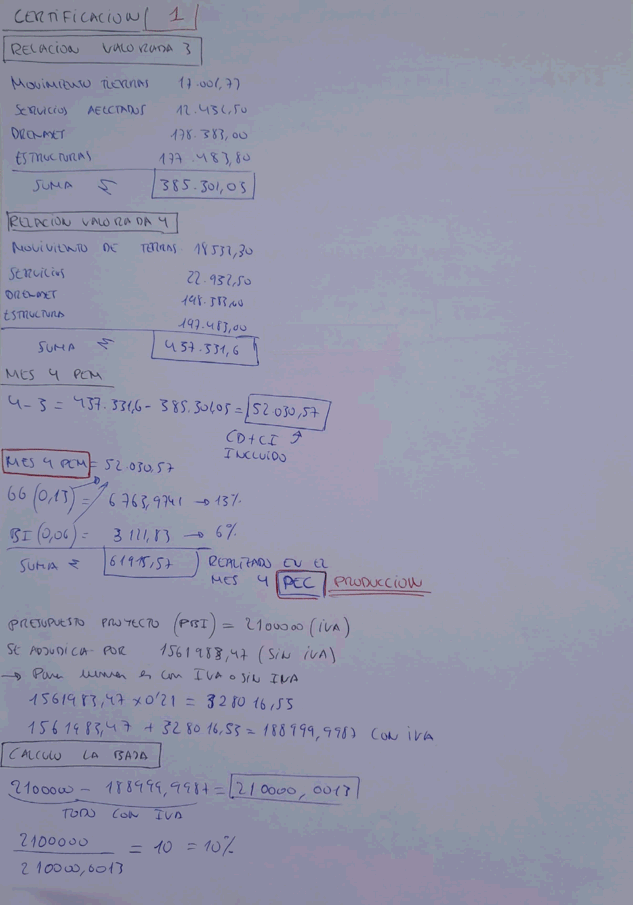 CERTIFICACION 1
RELACION VALORIZADA 3
MOVIMIENTO TIERRAS 17.001,77
SERVICIOS AFECTADOS 12.432,50
DRENAJET 178.383,00
ESTRUCTURAS 177.483,80
SUMA Σ 385.301,03
RELACION VALORADA 4
MOVIVIENTO DE TERRAS 18532,30
SERVICIOS 22.932,50
DRENAJET 198.383,00
ESTRUCTURA 197.483,00
SUMA Σ 437.331,6
MES 4 PEM
4-3 = 437.331,6 - 385.301,03 = 52 030,57
CD+CI
INCLUIDO
MES 4 PEM = 52.030,57
GG (0,13) = 6 763,9741 → 13%
BI (0,06) = 3 121,83 → 6%
SUMA Σ 61915,57 REALIZADO EN EL
MES 4 PEC PRODUCCION
PRESUPUESTO PROYECTO (PBI) = 2100000 (IVA)
SE ADJUDICA POR 1561983,47 (SIN IVA)
→ es con IVA o SIN IVA
1561983,47 x 0'21 = 328016,53
1561983,47 + 328016,53 = 188999,9987 CON IVA
CALCULO LA BAJA
2100000 - 188999,9987 = 210000,0013
TODO CON IVA
2100000 / 210000,0013 = 10 = 10%